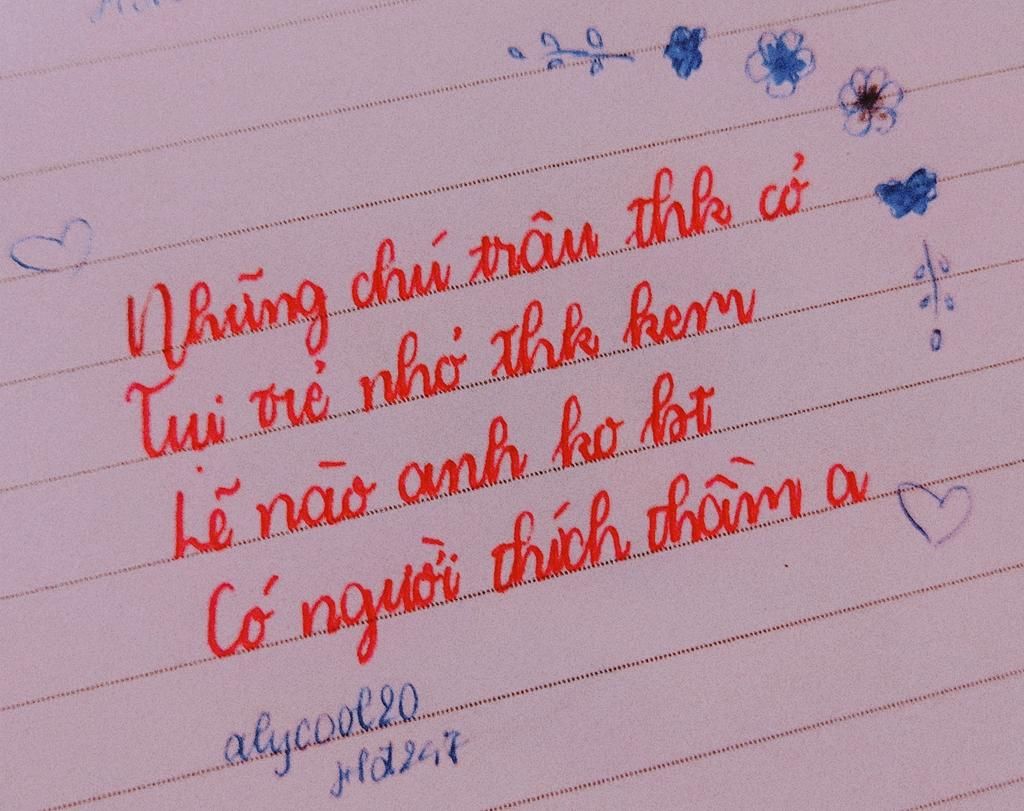 Những chú trâu thk cỏ
Tụi trẻ nhỏ thk kem
Lẽ nào anh ko bt
Có người thích thầm a
alycool20